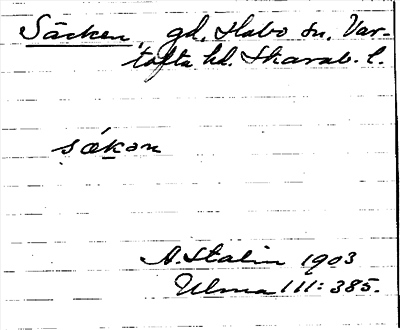 Säcken, gd, Habo sn. Var-
tofta hd. Skarab. l.
sǽkən
A. Stalin 1903
Ulma 111: 385.